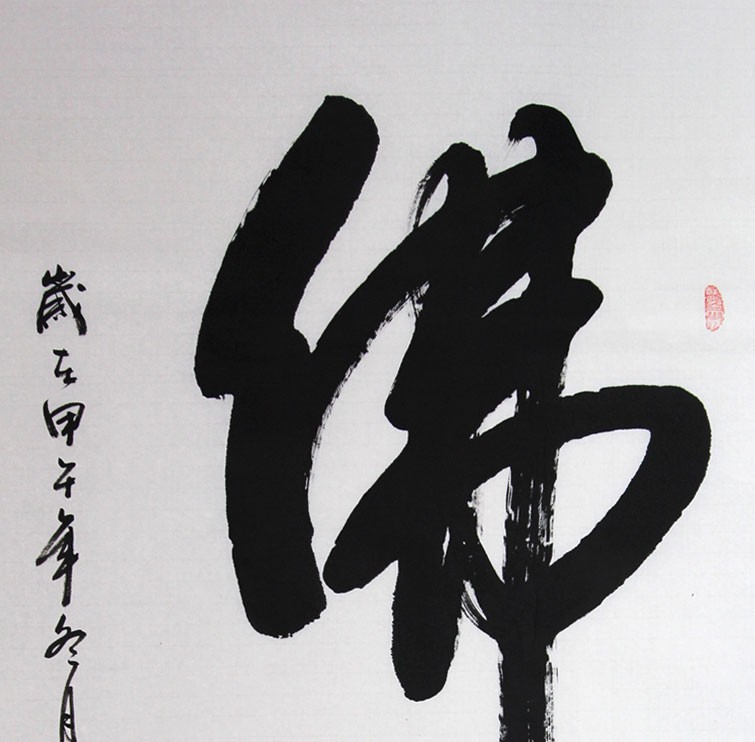 佛
歲在甲午年冬月